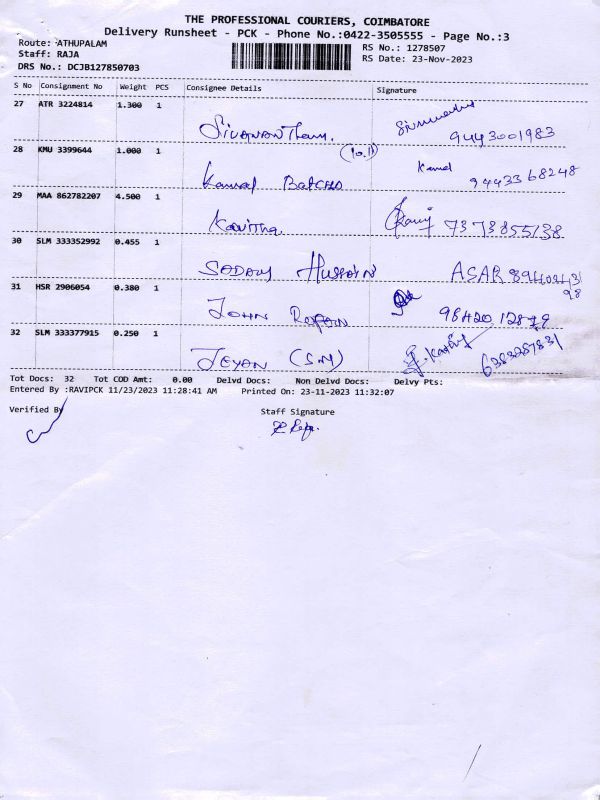 THE PROFESSIONAL COURIERS, COIMBATORE
Delivery Runsheet - PCK - Phone No.:0422-3505555 - Page No.:3
Route: ATHUPALAM RS No.: 1278507
Staff: RAJA RS Date: 23-Nov-2023
DRS No.: DCJB127850703
S No Consignment No Weight PCS Consignee Details Signature
27 ATR 3224814 1.300 1
Sivanantham. 9443001983
28 KMU 3399644 1.000 1 (10.11)
Kamal 9443368248
29 MAA 862782207 4.500 1
Kavitha. 7373855138
30 SLM 333352992 0.455 1
Hussain ASAR
31 HSR 2906054 0.380 1
John 98420 12879
32 SLM 333377915 0.250 1
Jeyan (S.M) 6383287831
Tot Docs: 32 Tot COD Amt: 0.00 Delvd Docs: Non Delvd Docs: Delvy Pts:
Entered By :RAVIPCK 11/23/2023 11:28:41 AM Printed On: 23-11-2023 11:32:07
Verified By Staff Signature